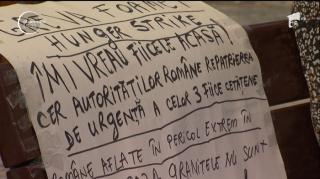 GREVA FOAMEI
HUNGER STRIKE
ÎMI VREAU FIICELE ACASĂ!
CER AUTORITĂȚILOR ROMÂNE REPATRIEREA
DE URGENȚĂ A CELOR 3 FIICE CETĂȚENE
ROMÂNE AFLATE ÎN PERICOL EXTREM ÎN
GRANIȚELE NU SUNT